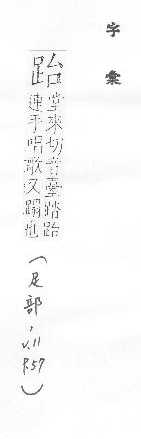 字彙
跆
堂來切音臺踏跆
連手唱歌又蹋也
(足部，V.11 P.57)